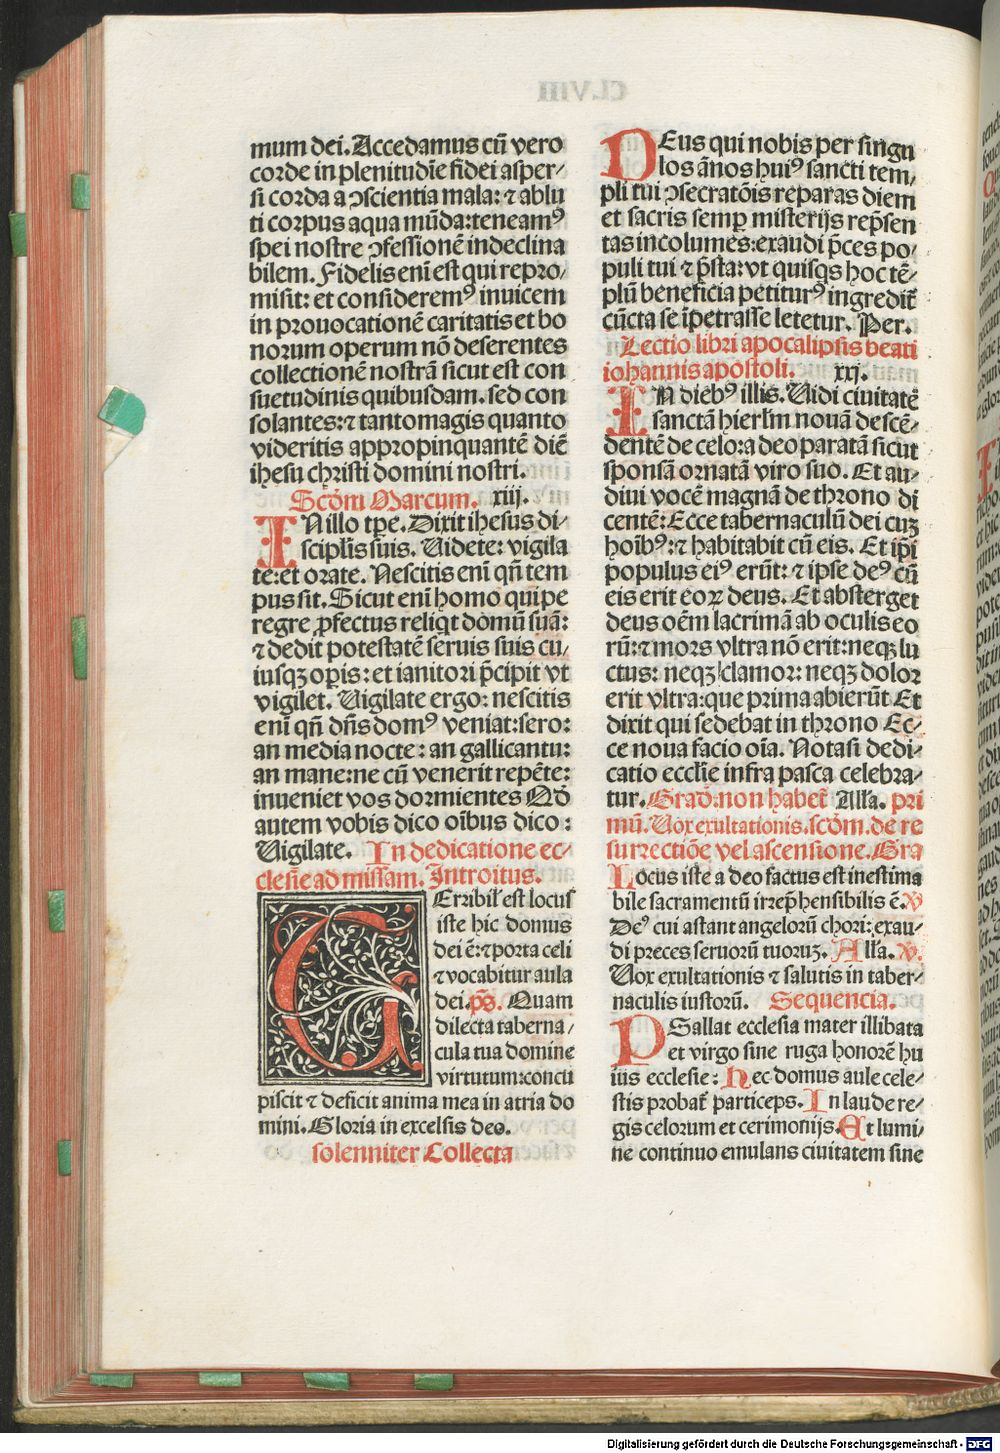 mum dei. Accedamus cū vero
corde in plenitudīe fidei asper⸗
si corda a ꝯscientia mala: ⁊ ablu
ti corpus aqua mūda: teneamꝰ
spei nostre ꝯfessionē indeclina
bilem. Fidelis enī est qui repro⸗
misit: et considerem⁹ inuicem
in prouocationē caritatis et bo
norum operum nō deserentes
collectionē nostrā sicut est con
suetudinis quibusdam. sed con
solantes: ⁊ tantomagis quanto
videritis appropinquantē diē
ihesu christi domini nostri.
Scḋm Marcum. xiij.
IN illo tꝑe. Dixit ihesus di⸗
scipl̄is suis. Uidete: vigila
te: et orate. Nescitis enī qn̄ tem
pus sit. Sicut enī homo qui pe
regre ꝓfectus reliqt domū suā:
⁊ dedit potestatē seruis suis cu⸗
iusqꝫ oꝑis: et ianitori p̄cipit vt
vigilet. Uigilate ergo: nescitis
enī qn̄ dn̄s dom⁹ veniat: sero:
an media nocte: an gallicantu:
an mane: ne cū venerit repēte:
inueniet vos dormientes Qḋ
autem vobis dico oībus dico:
Uigilate. In dedicatione ec⸗
clesie ad missam. Introitus.
TErribil̄ est locus
iste hic domus
dei ē: ⁊ porta celi
⁊ vocabitur aula
dei. p̄s. Quam
dilecta taberna⸗
cula tua domine
virtutum: concu
piscit ⁊ deficit anima mea in atria do
mini. Gloria in excelsis deo.
solenniter Collecta
DEus qui nobis per singu
los ān̄os hui⁹ sancti tem⸗
pli tui ꝯsecratōis reparas diem
et sacris semꝑ misterijs rep̄sen
tas incolumes: exaudi p̄ces po⸗
puli tui ⁊ p̄sta: vt quisqs hoc tē⸗
plū beneficia petitur⁹ ingredit̄
cūcta se īpetrasse letetur. Per.
Lectio libri apocalipsis beati
iohannis apostoli. xxj.
IN dieb⁹ illis. Uidi ciuitatē
sanctā hierl̄m nouā descē⸗
dentē de celo: a deo paratā sicut
sponsā ornatā viro suo. Et au⸗
diui vocē magnā de throno di
centē: Ecce tabernaculū dei cuꝫ
hoīb⁹: ⁊ habitabit cū eis. Et ip̄i
populus ei⁹ erūt: ⁊ ipse de⁹ cū
eis erit eoꝝ deus. Et absterget
deus oēm lacrimā ab oculis eo
rū: ⁊ mors vltra nō erit: neqꝫ lu
ctus: neqꝫ clamor: neqꝫ dolor
erit vltra: que prima abierūt Et
dixit qui sedebat in throno Ec⸗
ce noua facio oīa. Nota si dedi⸗
catio eccl̄ie infra pasca celebra⸗
tur. Graḋ: non habet̄ All̄a. pri
mū. Uox exultationis. scḋm. de re
surrectiōe vel ascensione. Gra
Locus iste a deo factus est inestima
bile sacramentū irrep̄hensibilis ē. V
De⁹ cui astant angelorū chori: exau⸗
di preces seruorū tuoruꝫ. All̄a. v.
Uox exultationis ⁊ salutis in taber⸗
naculis iustorū. Sequencia.
PSallat ecclesia mater illibata
et virgo sine ruga honorē hu
ius ecclesie: Hec domus aule cele⸗
stis probat̄ particeps. In laude re⸗
gis celorum et cerimonijs. Et lumi⸗
ne continuo emulans ciuitatem sine
Digitalisierung gefördert durch die Deutsche Forschungsgemeinschaft - DFG